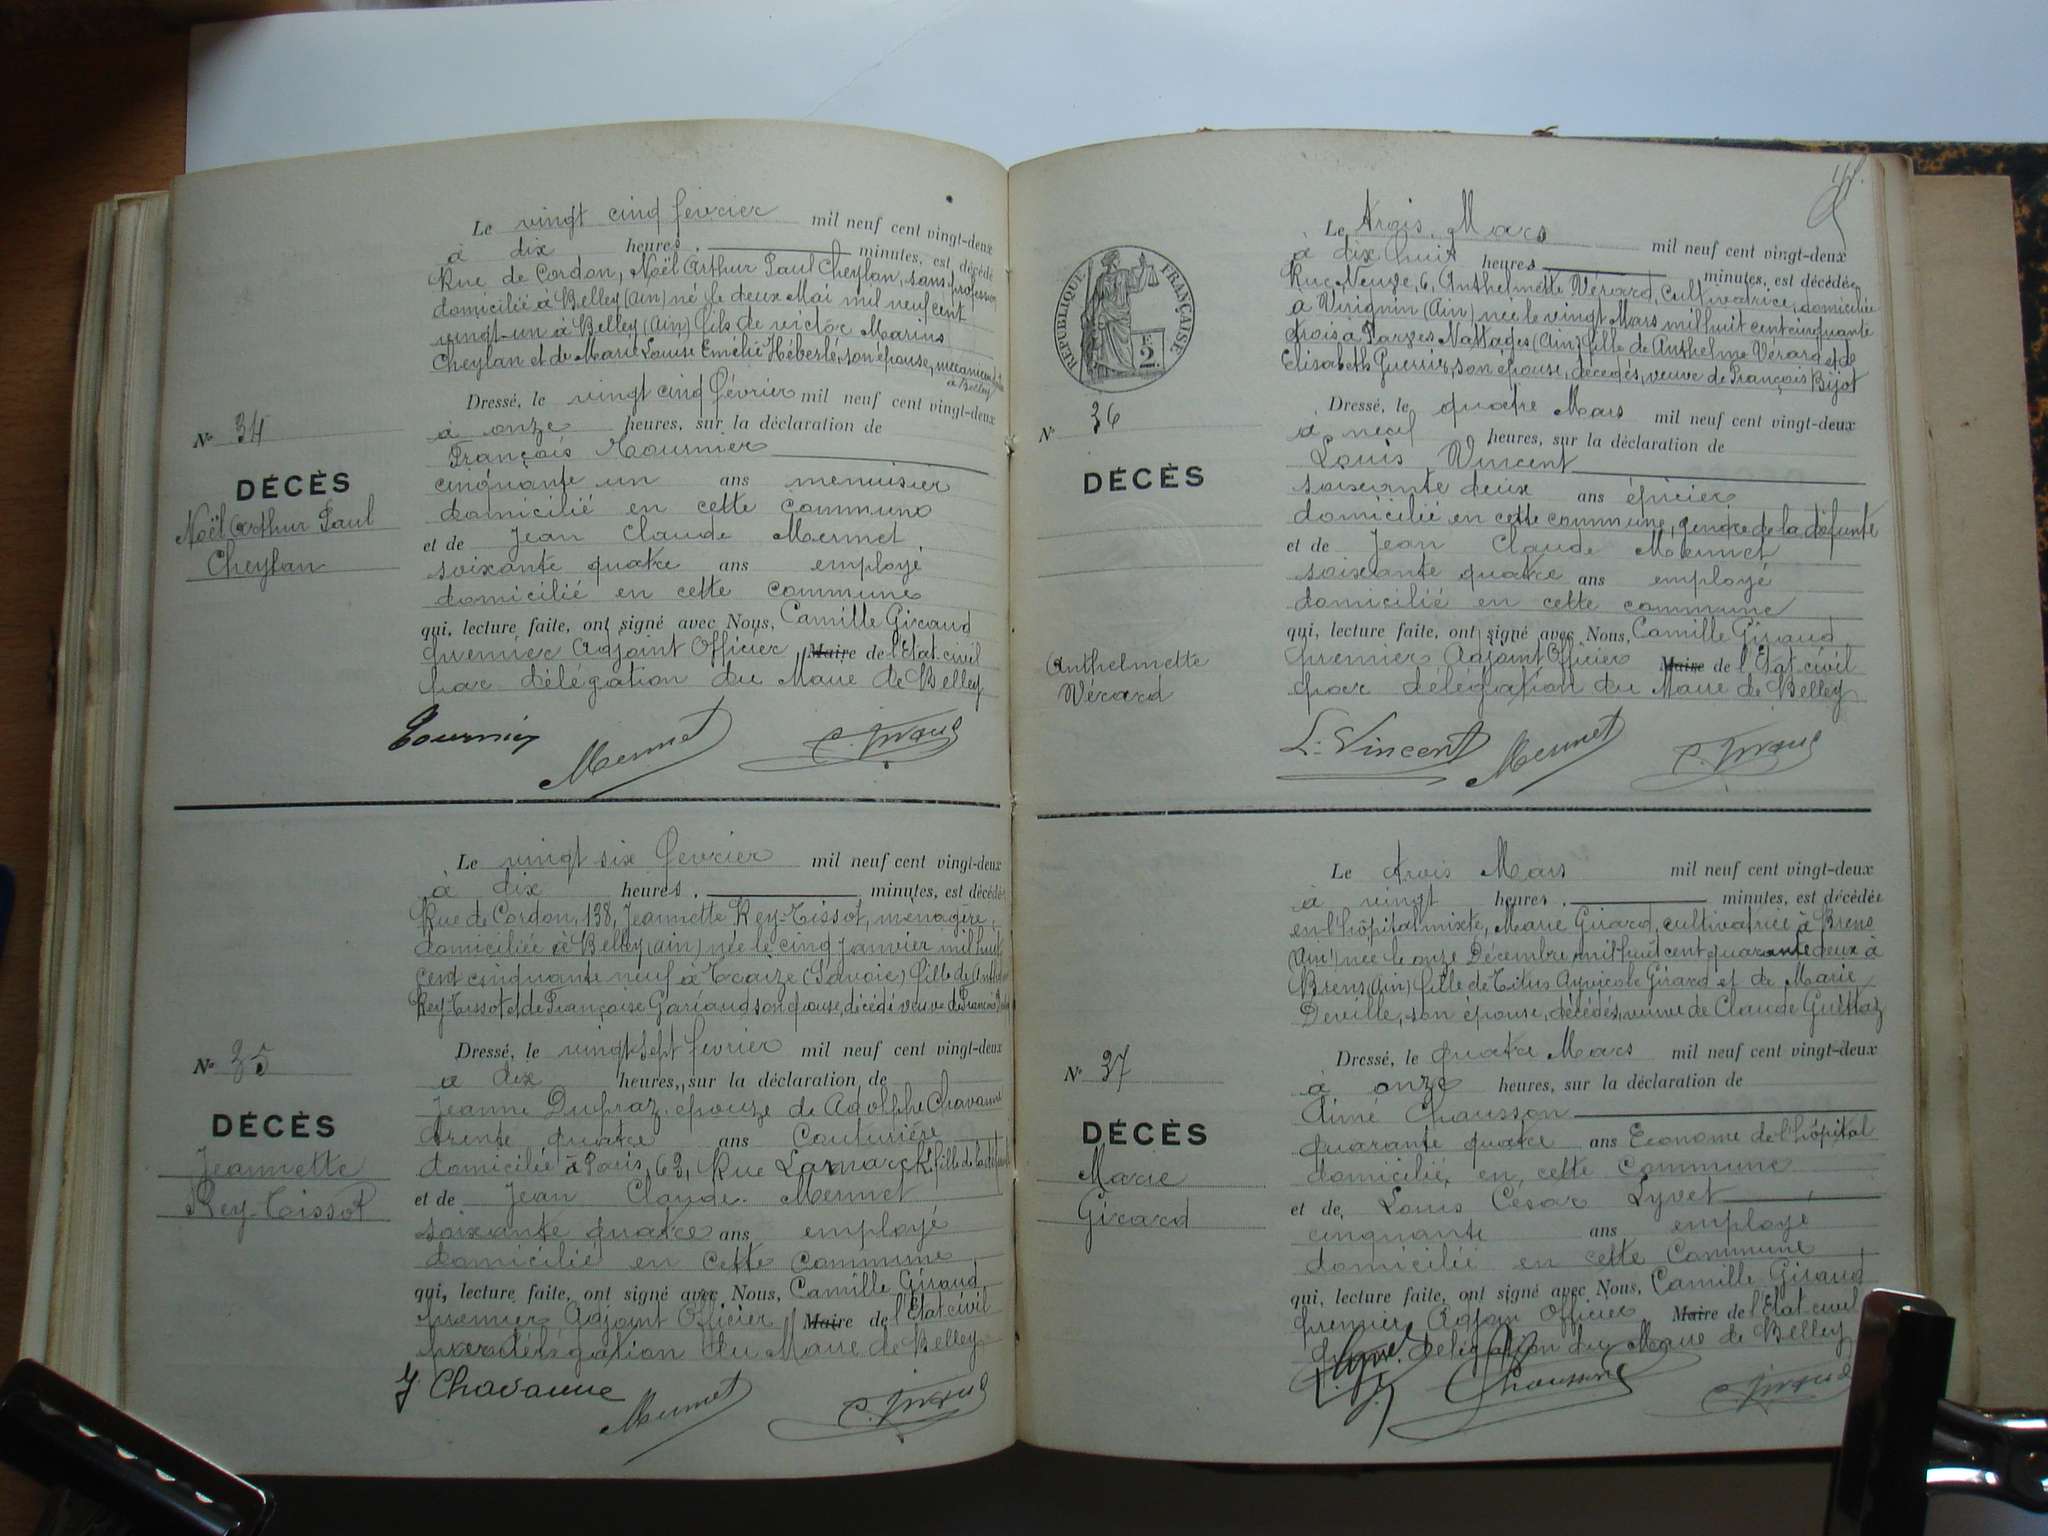 Le vingt cinq février mil neuf cent vingt-deux
à dix heures minutes, est décédé
Rue de Cordon, Noël Arthur Paul Cheylan, sans profession
domicilié à Belley (Ain) né le deux Mai mil neuf cent
vingt-un à Belley (Ain) fils de victor Marius
Cheylan et de Marie Louise Emélie Héberlé, son épouse, mécanicien
à Belley
Dressé, le vingt cinq février mil neuf cent vingt-deux
à onze heures, sur la déclaration de
François Tournier
cinquante un ans menuisier
domicilié en cette commune
et de Jean Claude Mermet
soixante quatre ans employé
domicilié en cette commune
qui, lecture faite, ont signé avec Nous, Camille Giraud
premier Adjoint Officier Maire de l'Etat-civil
par délégation du Maire de Belley
Nº 34
DÉCÈS
Noël Arthur Paul
Cheylan
Tournier Mermet C. Giraud
Le vingt six février mil neuf cent vingt-deux
à dix heures minutes, est décédée
Rue de Cordon, 138, Jeannette Rey-Tissot, ménagère,
domiciliée à Belley (Ain) née le cinq Janvier mil huit
cent cinquante neuf à Traize (Savoie) fille de
Rey-Tissot et de Françoise Gariaud son épouse, décédé veuve de François
Dressé, le vingt sept février mil neuf cent vingt-deux
à dix heures, sur la déclaration de
Jeanne Dupraz épouze de Adolphe Chavanne
trente quatre ans Couturière
domicilié à Paris, 63, Rue Lamarck, fille de la
et de Jean Claude Mermet
soixante quatre ans employé
domicilié en cette commune
qui, lecture faite, ont signé avec Nous, Camille Giraud
premier Adjoint Officier Maire de l'Etat-civil
par délégation du Maire de Belley
Nº 35
DÉCÈS
Jeannette
Rey-Tissot
J Chavanne Mermet C. Giraud
RÉPUBLIQUE FRANÇAISE
F.
2.
Le trois Mars mil neuf cent vingt-deux
à dix huit heures minutes, est décédée
Rue Neuve, 6, Anthelmette Vérard, Cultivatrice, domiciliée
à Virignin (Ain) née le vingt Mars mil huit cent cinquante
trois à Parves Nattages (Ain) fille de Anthelme Vérard et de
Elisabeth Guerrier, son épouse, décédés, veuve de François Bijot
Dressé, le quatre Mars mil neuf cent vingt-deux
à neuf heures, sur la déclaration de
Louis Vincent
soixante deux ans épicier
domicilié en cette commune, gendre de la défunte
et de Jean Claude Mermet
soixante quatre ans employé
domicilié en cette commune
qui, lecture faite, ont signé avec Nous, Camille Giraud
premier Adjoint Officier Maire de l'Etat-civil
par délégation du Maire de Belley
Nº 36
DÉCÈS
Anthelmette
Vérard
L. Vincent Mermet C. Giraud
Le trois Mars mil neuf cent vingt-deux
à vingt heures minutes, est décédée
en l'hôpital mixte, Marie Girard, cultivatrice à Brens
(Ain) née le onze Décembre mil huit cent quarante deux à
Brens (Ain) fille de Titus Agricole Girard et de Marie
Deville, son épouse, décédés, veuve de Claude Guettaz
Dressé, le quatre Mars mil neuf cent vingt-deux
à onze heures, sur la déclaration de
Aimé Chausson
quarante quatre ans Econome de l'hôpital
domicilié en cette Commune
et de Louis César Lyvet
cinquante ans employé
domicilié en cette Commune
qui, lecture faite, ont signé avec Nous, Camille Giraud
premier Adjoin Officier Maire de l'Etat-civil
délégation du Maire de Belley
Nº 37
DÉCÈS
Marie
Girard
Chausson C. Giraud